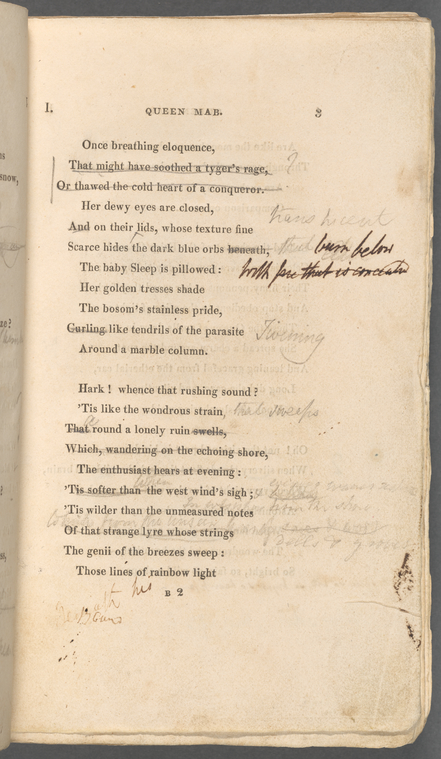 I.
QUEEN MAB.
3
Once breathing eloquence,
That might have soothed a tyger's rage, ?
Or thawed the cold heart of a conqueror.
Her dewy eyes are closed,
And on their lids, whose texture fine
Scarce hides the dark blue orbs beneath, that burn below
With fire that is concealed
The baby Sleep is pillowed:
Her golden tresses shade
The bosom's stainless pride,
Curling like tendrils of the parasite Twining
Around a marble column.
Hark! whence that rushing sound?
'Tis like the wondrous strain, that sweeps
a
That round a lonely ruin swells,
Which, wandering on the echoing shore,
The enthusiast hears at evening:
'Tis softer than the west wind's sigh;
'Tis wilder than the unmeasured notes
Of that strange lyre whose strings
The genii of the breezes sweep:
Those lines of rainbow light
his
B 2